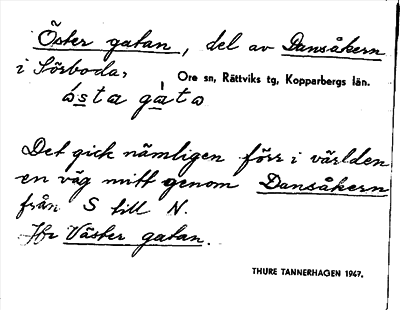 Öster gatan, del av Dansåkern
i Sörboda,
Ore sn, Rättviks tg, Kopparbergs län.
ósta gàta
Det gick nämligen förr i världen
en väg mitt genom Dansåkern
från S till N.
Jfr Väster gatan.
THURE TANNERHAGEN 1947.